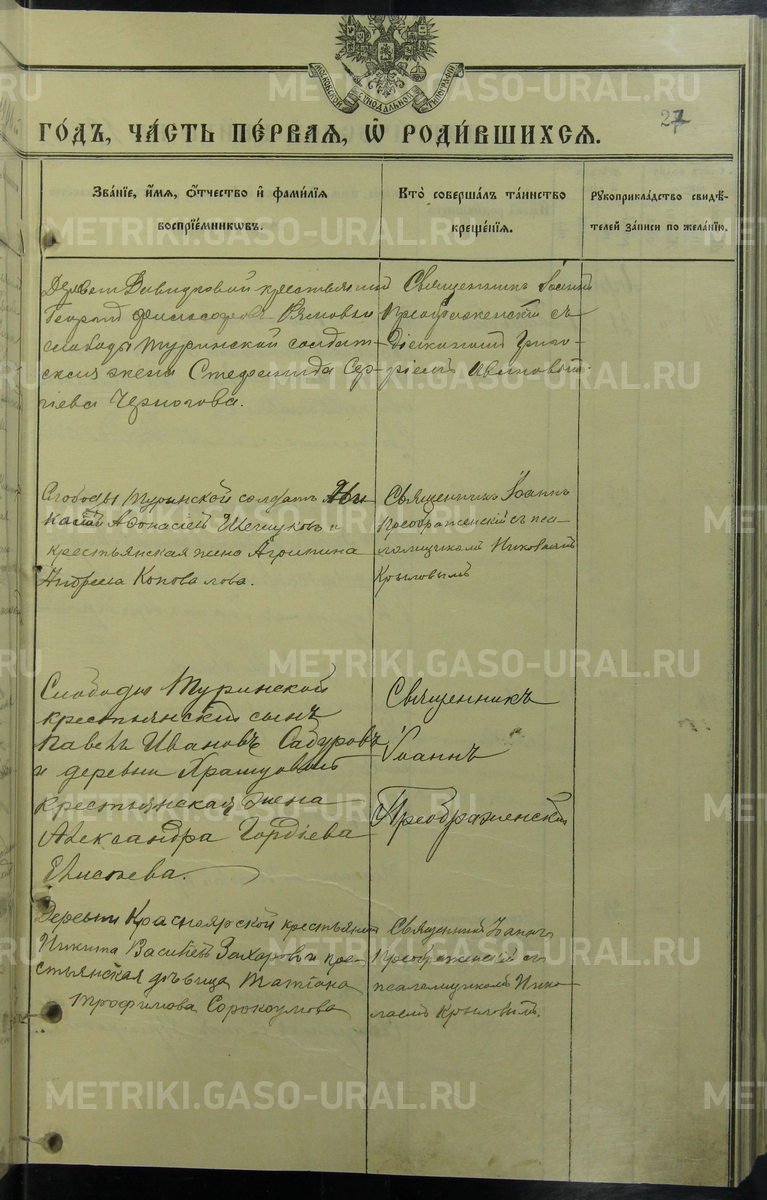 МОСКОВСКОЙ СѴНОДАЛЬНОЙ ТИПОГРАФІИ
27
ГО́ДЪ, ЧА́СТЬ ПЕ́РВАЯ, Ѡ҆ РОДИ́ВШИХСЯ.
Зва́нїе, и҆́мя, ѻ҆́тчество и҆ фамилїя
воспрїе́мниковъ.
Кто̀ соверша́лъ та́инство
креще́нїя.
Рукоприкла́дство свидѣ́-
телей за́писи по жела́нїю.
Деревни Давидковой крестьянин
Георгий Философовъ
слободы Туринской солдат-
ская жена Стефанида Сер-
гіева Черногова.
Священникъ Іоаннъ
Преображенскій съ
діакономъ Григо-
ріемъ
Слободы Туринской солдатъ
Афонасіевъ Шешуковъ и
крестьянская жена Агрипина
Андреева Коновалова.
Священникъ Іоаннъ
Преображенскій съ пса-
ломщикомъ Николаемъ
Крыловымъ
Слободы Туринской
крестьянскій сынъ
Павелъ Ивановъ Сабуровъ
и деревни Храмцовой
крестьянская жена
Александра Гордіева
Елисѣева.
Священникъ
Іоаннъ
Преображенскій
Деревни Красноярской крестьянин
Никита Василіев Захаров и кре-
стьянская дѣвица Татіана
Трофимова Сорокоумова
Священник Іоаннъ
Преображенскій съ
псаломщикомъ Нико-
лаемъ Крыловымъ.
METRIKI.GASO-URAL.RU